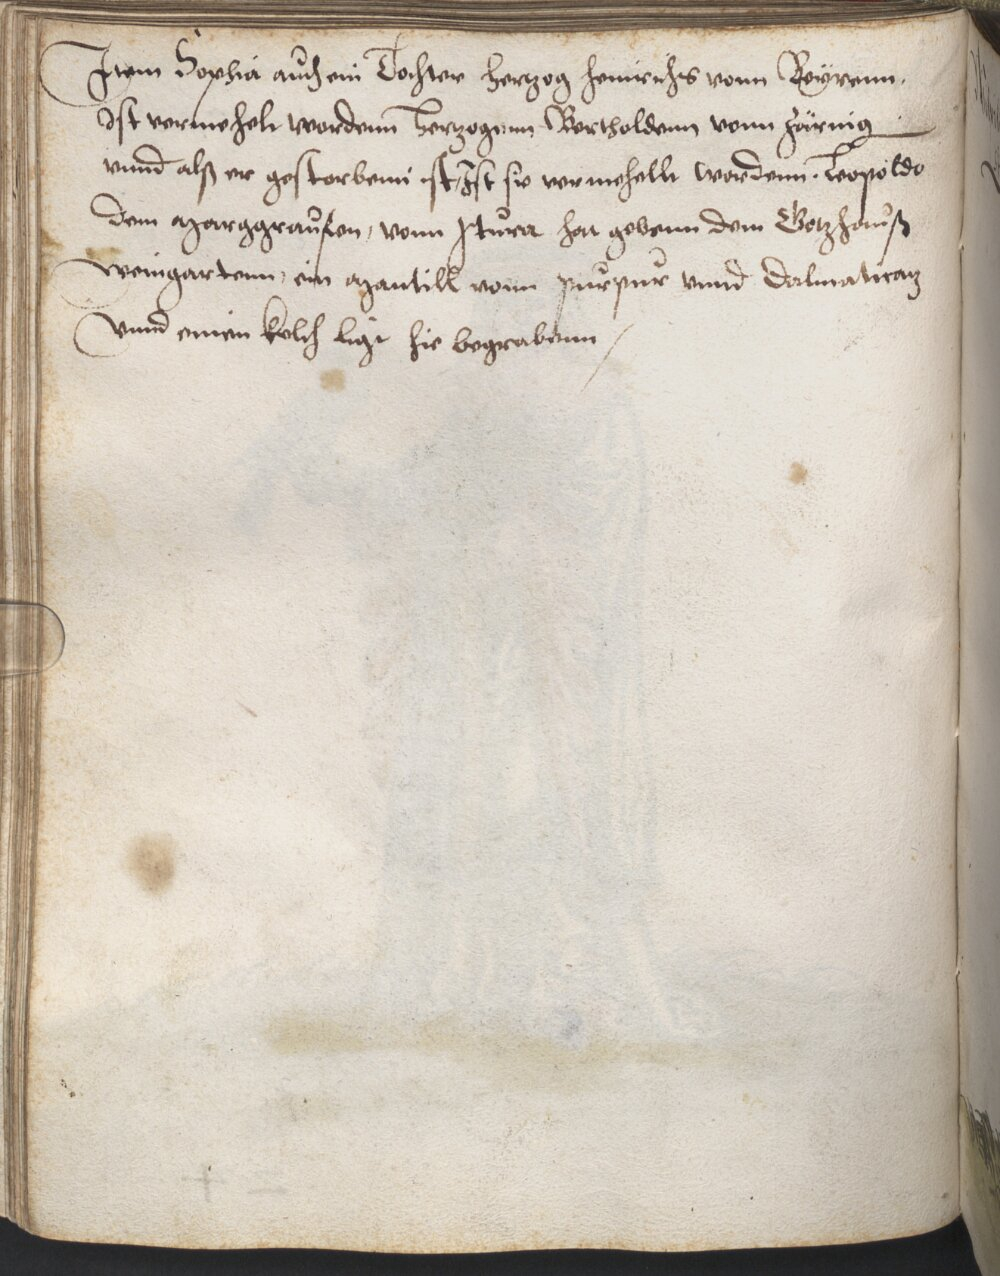 Item Sophia auch ein Tochter hertzog heinrichs vonn Beÿrenn,
Ist vermehelt wordenn hertzogenn Bertholdenn vonn Häring
vnnd alß er gestorbenn ist, Ist sie vermehellt wordenn Leopoldo
dem Marggrauffen, vonn Stiira hat gebenn dem Gotzhauß
Weingartenn, ein Mantill vonn purpur vnnd Dalmaticam
Vnnd einen kelch ligt hie begrabenn /